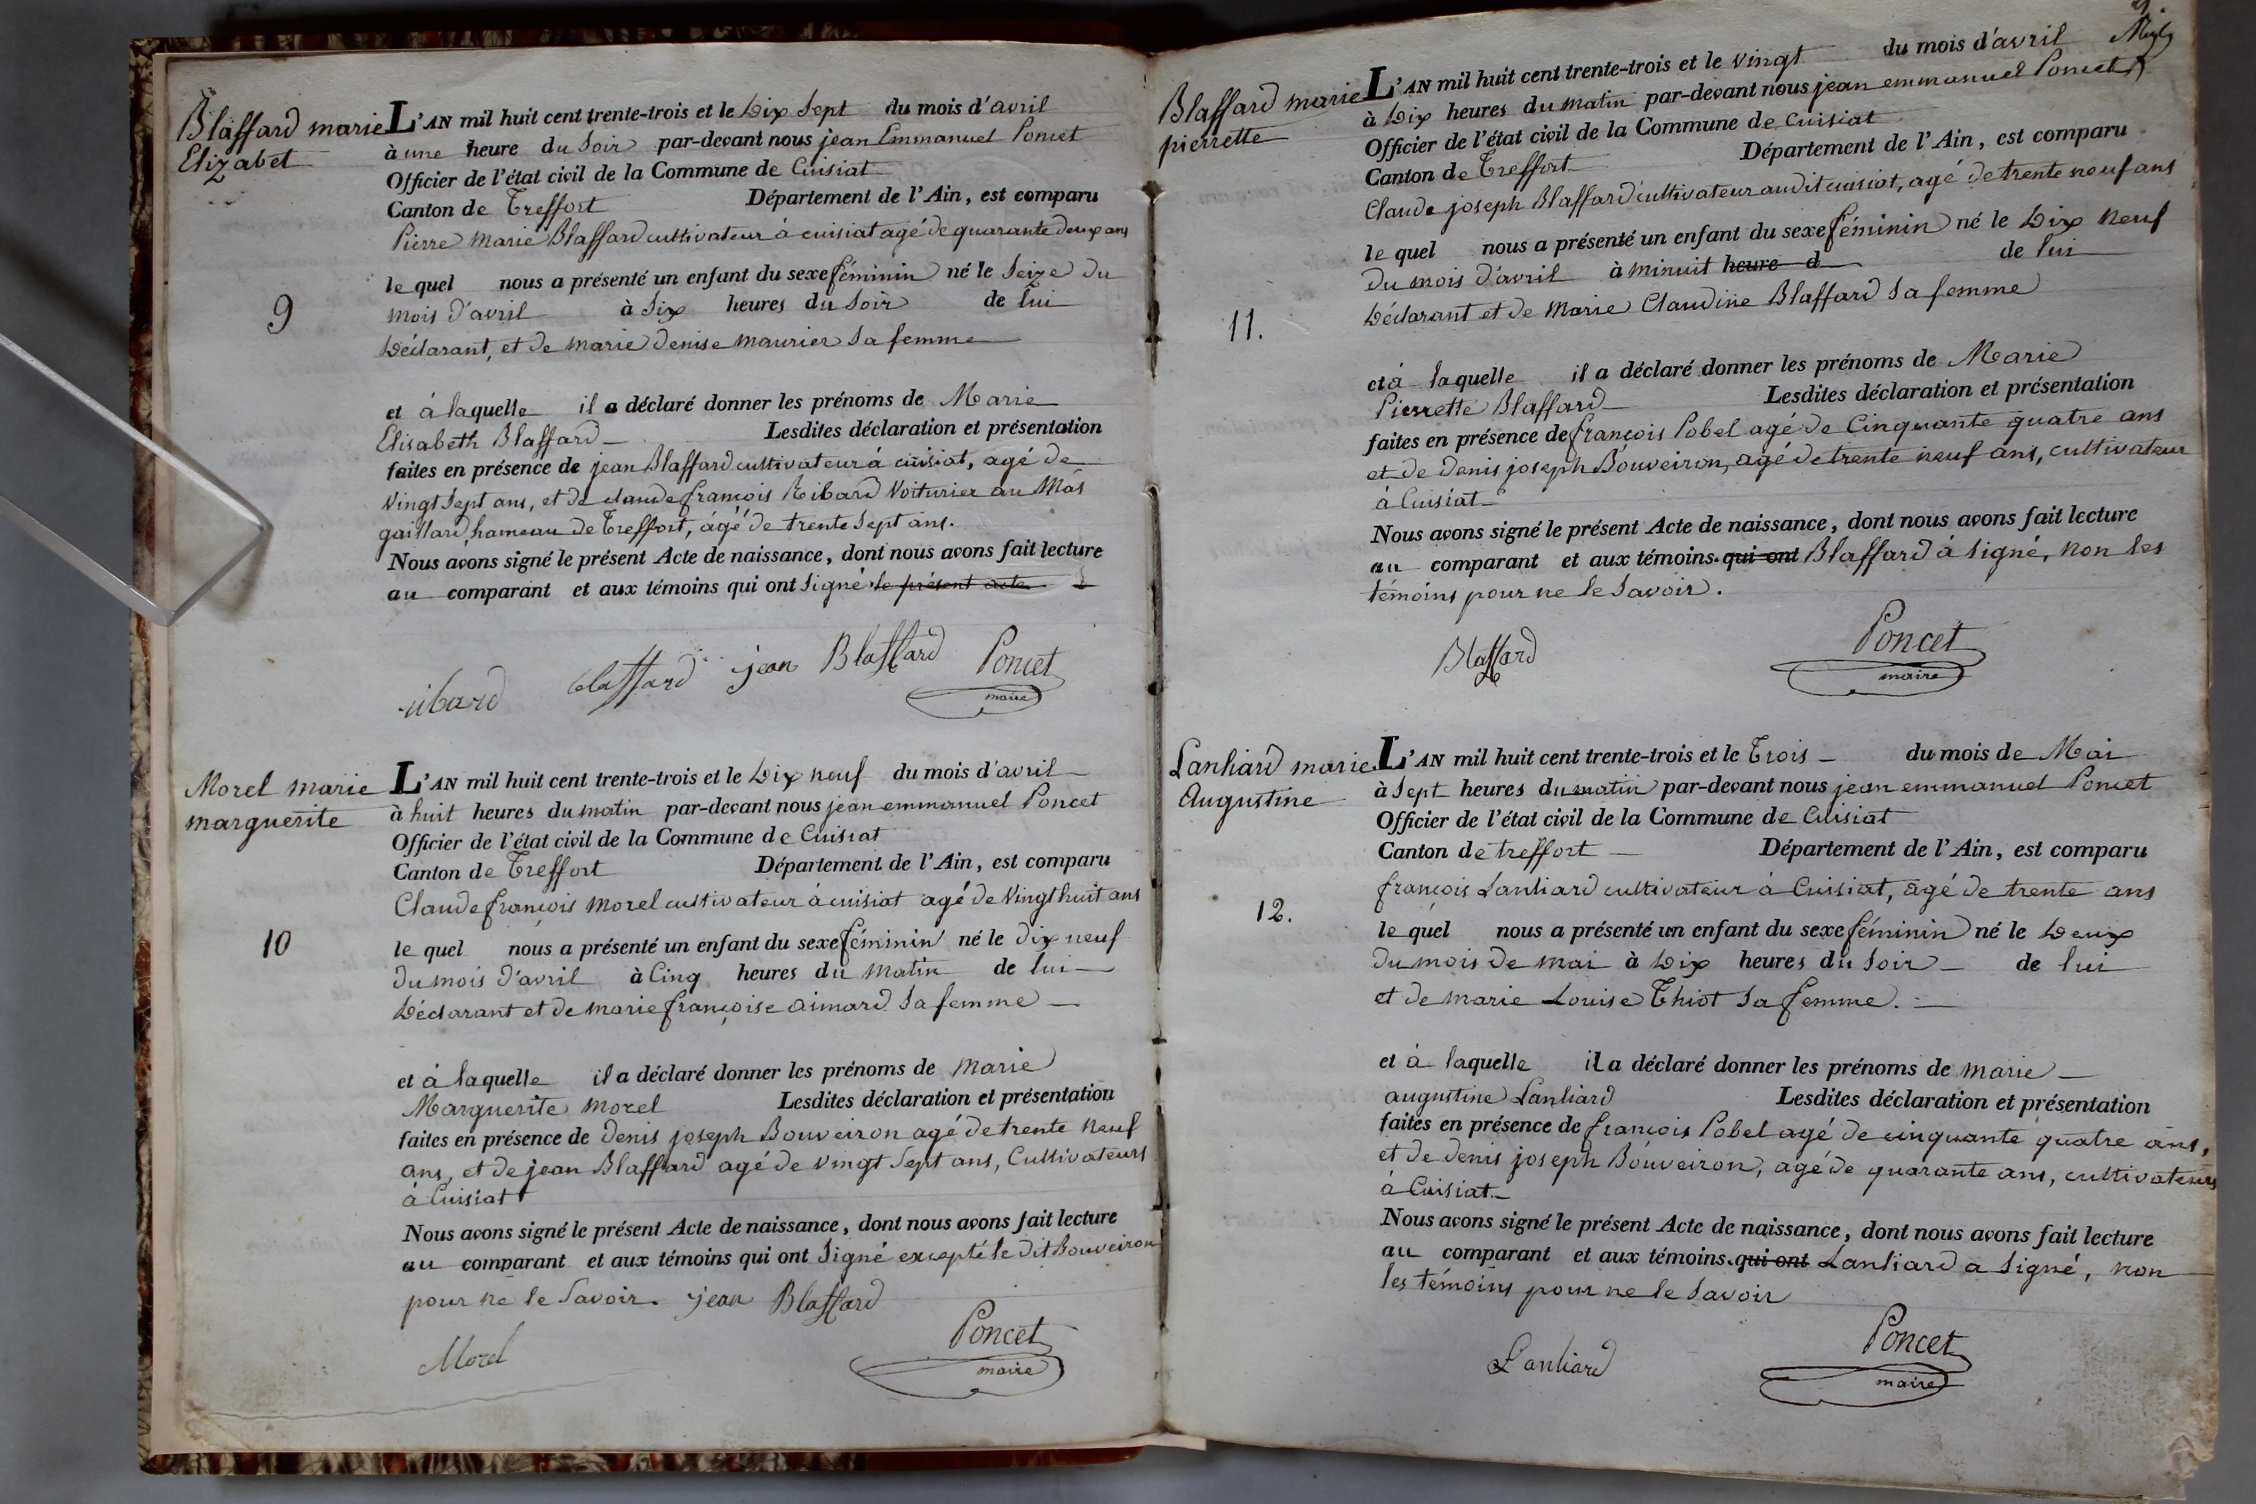 Blaffard marie
Elizabet
9
L'AN mil huit cent trente-trois et le Dix Sept du mois d'avril
à une heure du Soir par-devant nous jean Emmanuel Poncet
Officier de l'état civil de la Commune de Cuisiat
Canton de Treffort Département de l'Ain, est comparu
Pierre Marie Blaffard cultivateur à cuisiat agé de quarante deux ans
le quel nous a présenté un enfant du sexe féminin né le Seize du
mois d'avril à Six heures du Soir de lui
Déclarant, et de marie denise maurier Sa femme
et à laquelle il a déclaré donner les prénoms de Marie
Elisabeth Blaffard Lesdites déclaration et présentation
faites en présence de jean Blaffard cultivateur à cuisiat, agé de
Vingt Sept ans, et de claude françois Ribard Voiturier au Mas
gaillard, hameau de Treffort, âgé de trente Sept ans.
Nous avons signé le présent Acte de naissance, dont nous avons fait lecture
au comparant et aux témoins qui ont Signé le présent acte
ribard blaffard jean Blaffard Poncet
maire
Morel marie
marguerite
10
L'AN mil huit cent trente-trois et le Dix neuf du mois d'avril
à huit heures du matin par-devant nous jean emmanuel Poncet
Officier de l'état civil de la Commune de Cuisiat
Canton de Treffort Département de l'Ain, est comparu
Claude françois Morel cultivateur à cuisiat agé de Vingt huit ans
le quel nous a présenté un enfant du sexe féminin né le dix neuf
du mois d'avril à Cinq heures du Matin de lui
Déclarant et de marie françoise aimard Sa femme
et à laquelle il a déclaré donner les prénoms de Marie
Marguerite Morel Lesdites déclaration et présentation
faites en présence de Denis joseph Bouveiron agé de trente neuf
ans, et de jean Blaffard agé de vingt Sept ans, Cultivateurs
à Cuisiat
Nous avons signé le présent Acte de naissance, dont nous avons fait lecture
au comparant et aux témoins qui ont Signé excepté le dit Bouveiron
pour ne le Savoir. jean Blaffard
Morel Poncet
maire
Blaffard marie
pierrette
11.
L'AN mil huit cent trente-trois et le Vingt du mois d'avril
à Dix heures du matin par-devant nous jean emmanuel Poncet
Officier de l'état civil de la Commune de Cuisiat
Canton de Treffort Département de l'Ain, est comparu
Claude joseph Blaffard cultivateur audit cuisiat, agé de trente neuf ans
le quel nous a présenté un enfant du sexe féminin né le Dix Neuf
du mois d'avril à minuit heure d de lui
Déclarant et de Marie Claudine Blaffard Sa femme
et à laquelle il a déclaré donner les prénoms de Marie
Pierrette Blaffard Lesdites déclaration et présentation
faites en présence de françois Pobel agé de Cinquante quatre ans
et de denis joseph Bouveiron, agé de trente neuf ans, cultivateur
à Cuisiat
Nous avons signé le présent Acte de naissance, dont nous avons fait lecture
au comparant et aux témoins qui ont Blaffard à Signé, Non les
témoins pour ne le Savoir.
Blaffard Poncet
maire
Lanliard marie
Augustine
12.
L'AN mil huit cent trente-trois et le Trois du mois de Mai
à Sept heures du matin par-devant nous jean emmanuel Poncet
Officier de l'état civil de la Commune de Cuisiat
Canton de treffort Département de l'Ain, est comparu
françois Lanliard cultivateur à Cuisiat, agé de trente ans
le quel nous a présenté un enfant du sexe féminin né le Deux
du mois de mai à Dix heures du Soir de lui
et de marie Louise Thiot Sa femme.
et à laquelle il a déclaré donner les prénoms de marie
augustine Lanliard Lesdites déclaration et présentation
faites en présence de françois Pobel agé de cinquante quatre ans,
et de denis joseph Bouveiron, agé de quarante ans, cultivateurs
à Cuisiat
Nous avons signé le présent Acte de naissance, dont nous avons fait lecture
au comparant et aux témoins qui ont Lanliard a Signé, non
les témoins pour ne le Savoir
Lanliard Poncet
maire